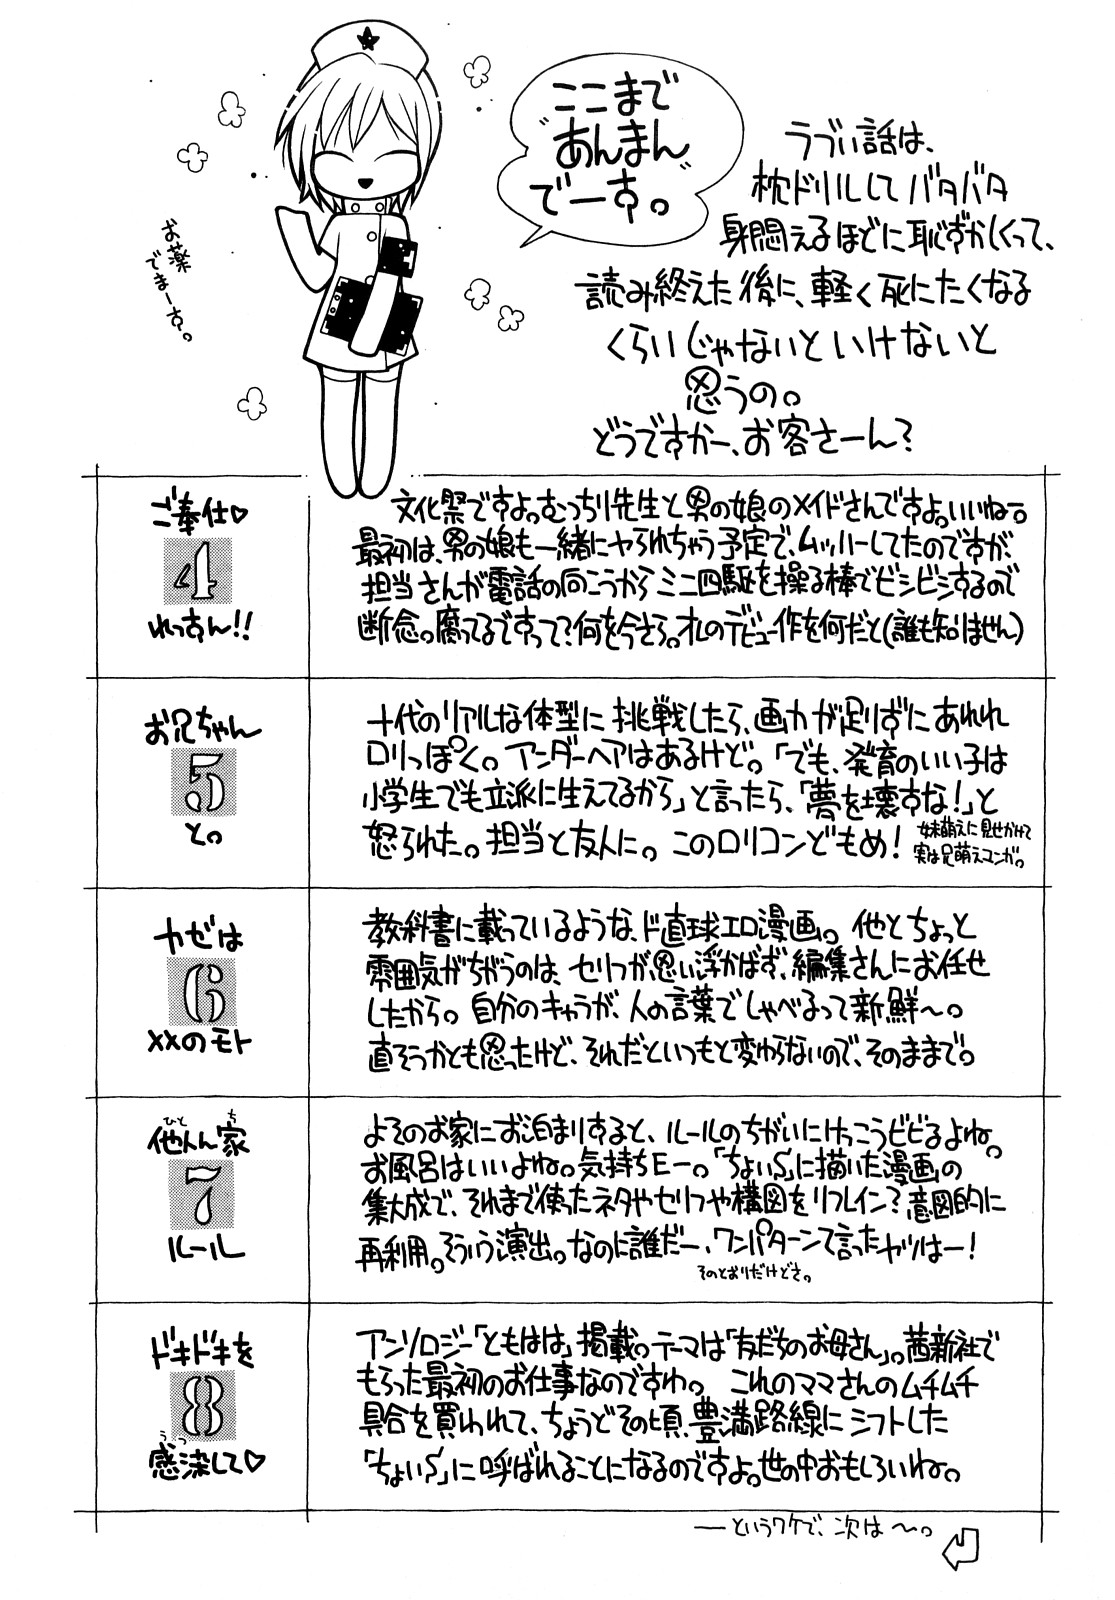 ここまで
"あんまん"
でーす。
お薬
でまーす。
ラブい話は、
枕ドリルしてバタバタ
身悶えるほどに恥ずかしくって、
読み終えた後に、軽く死にたくなる
くらいじゃないといけないと
思うの。
どうですかー、お客さーん?
ご奉仕♡
4
れっすん!!
文化祭ですよ。むっつり先生と男の娘のメイドさんですよ。いいねー。
最初は、男の娘も一緒にヤられちゃう予定で、ムッハーしてたのですが、
担当さんが電話の向こうからミニ四駆を操る棒でビシビシするので
断念。腐ってるですって?何を今さら。オレのデビュー作を何だと(誰も知りません)
カゼは
6
××のモト
教科書に載っているような、ド直球エロ漫画。他とちょっと
雰囲気がちがうのは、セリフが思い浮かばず、編集さんにお任せ
したから。自分のキャラが、人の言葉でしゃべるって新鮮〜。
直そうかとも思ったけど、それだといつもと変わらないので、そのままで。
ひと ち
他人ん家
7
ルール
よそのお家にお泊まりすると、ルールのちがいにけっこうビビるよね。
お風呂はいいよね。気持ちE〜。「ちょいS」に描いた漫画の
集大成で、それまで使ったネタやセリフや構図をリフレイン?意図的に
再利用。そういう演出。なのに誰だー、ワンパターンて言ったヤツはー!
そのとおりだけどさ。
ドキドキを
8
うつ
感染して♡
アンソロジー「ともはは」掲載。テーマは「友だちのお母さん」。茜新社で
もらった最初のお仕事なのですわ。これのママさんのムチムチ
具合を買われて、ちょうどその頃、豊満路線にシフトした
「ちょいS」に呼ばれることになるのですよ。世の中おもしろいね。
――というワケで、次は〜。